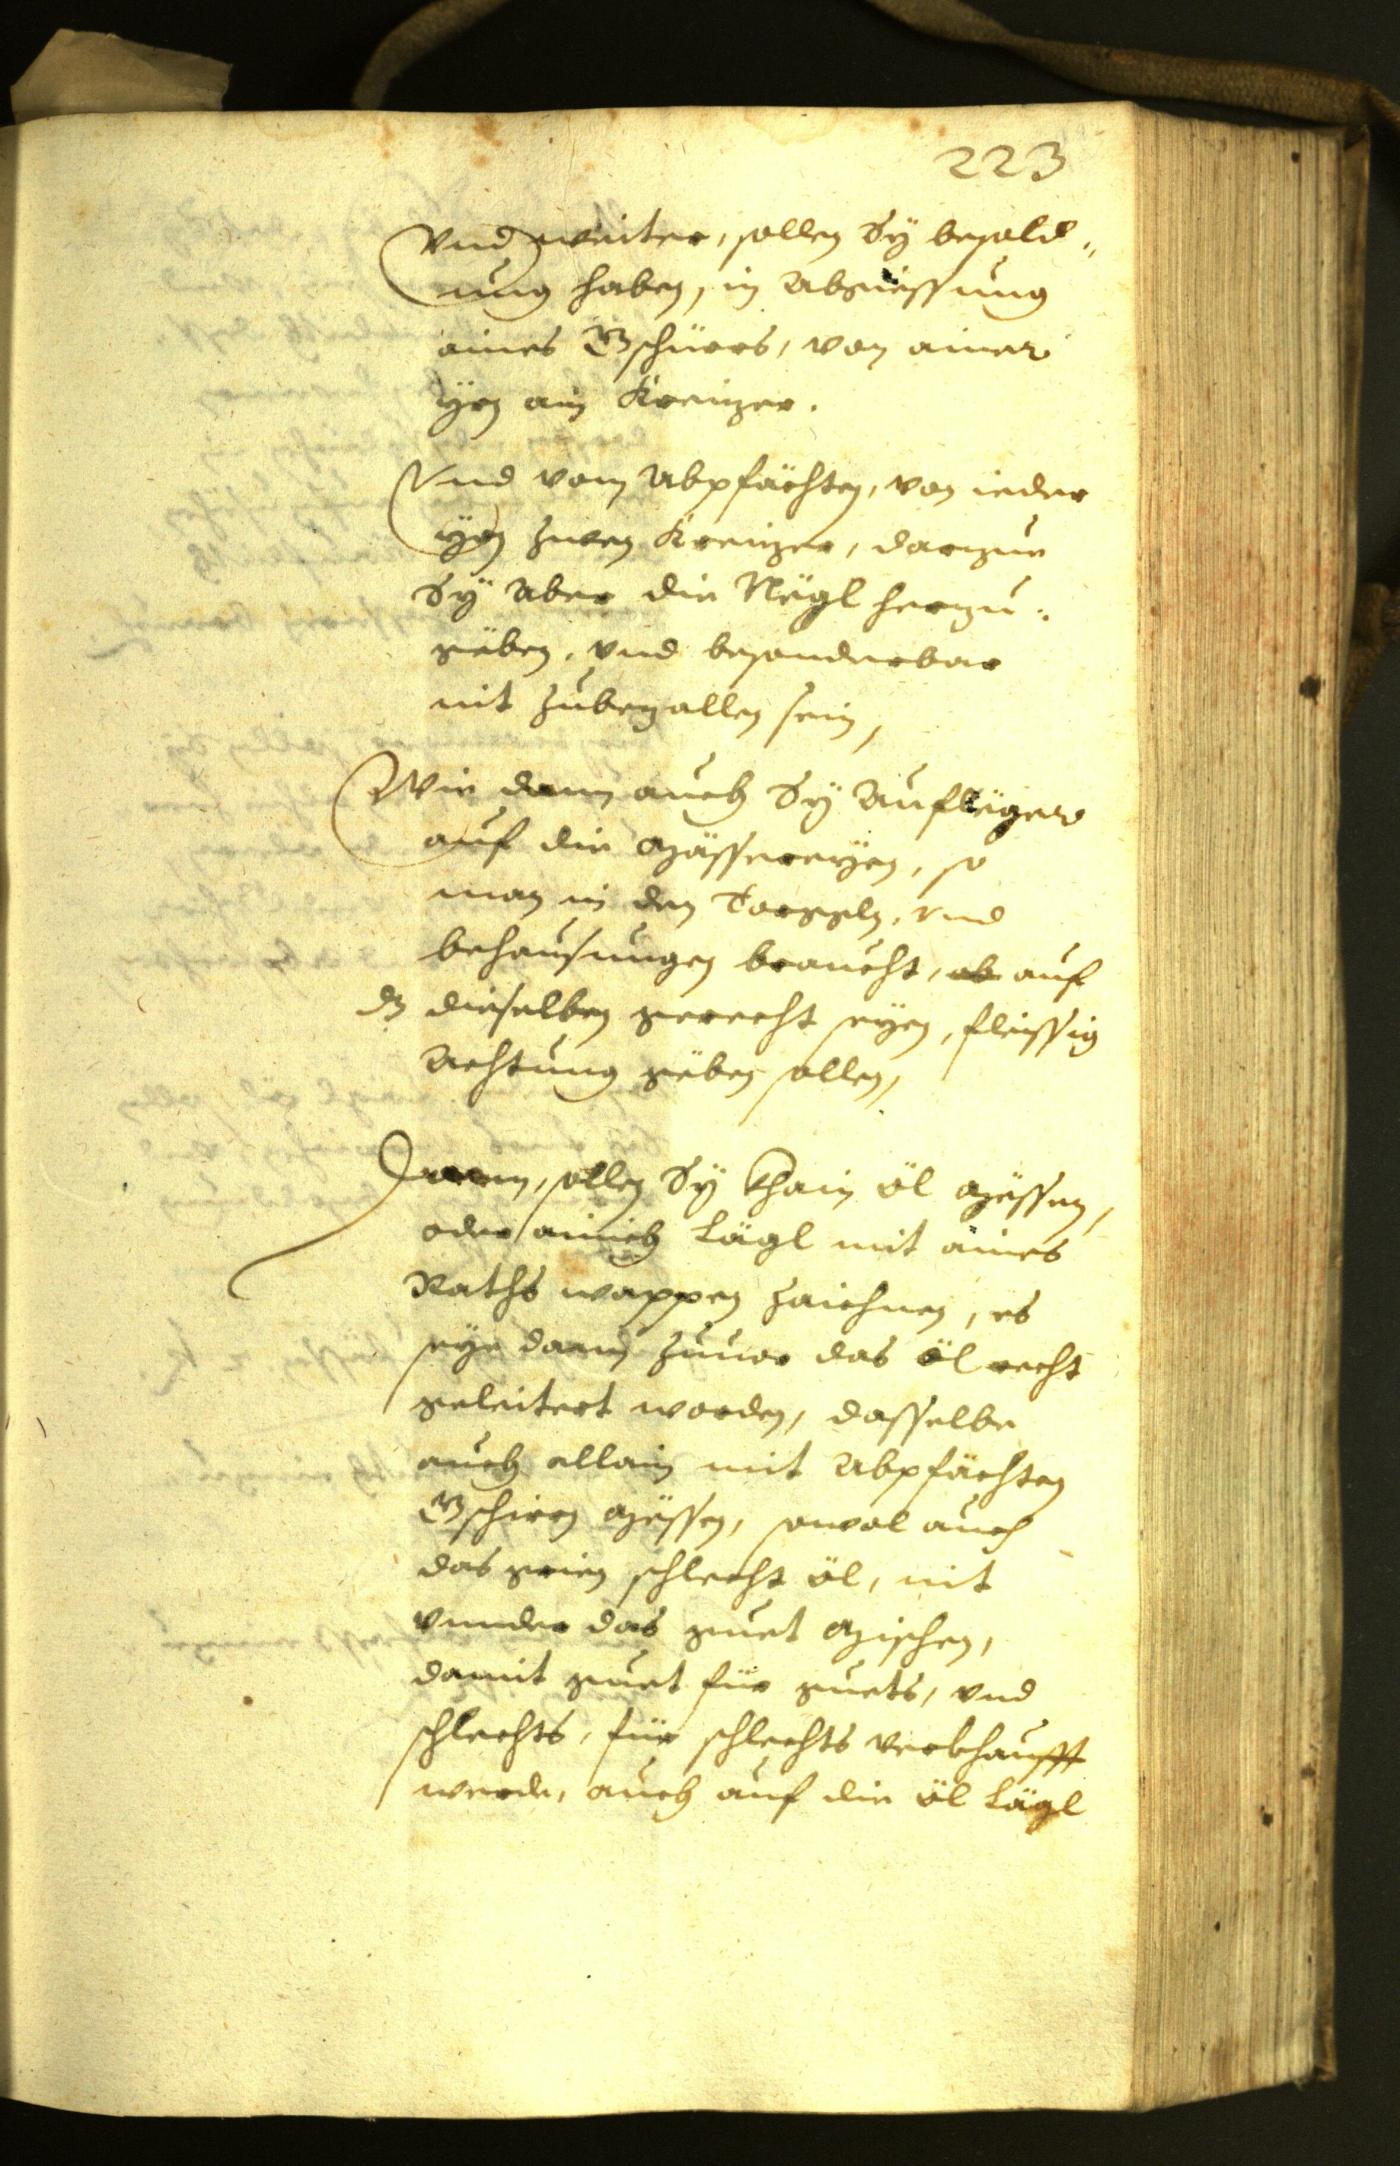 223
Vnd weiter, sollen Sÿ besold„
ung haben, in Abgiessung
aines Gschürrs, von ainer
ÿrn ain Kreuzer.
Vnd vom Abpfächten, von ieder
ÿrn zwen Kreuzer, darzue
Sÿ Aber die Nëgl herzu„
gëben, vnd besonderbar
nit zubezallen sein,
Wie dann auch Sÿ Aufleger
auf die Mässereÿen, so
man in den Torggln, vnd
behausungen braucht, ob auf
dz dieselben gerecht seÿen, fleissig
Achtung gëben sollen,
Item, sollen Sÿ khain öl Mëssen,
oder ainich Lägl mit aines
Raths wappen zaichnen, es
seÿe dann zuuor das öl recht
geleitert worden, dasselbe
auch allain mit Abpfächten
Gschirrn Mëssen, sowol auch
das grien schlecht öl, nit
vnnder das guet Mischen,
damit guet für guets, vnd
schlechts, für schlechts verkhaufft
werde, auch auf die öl Lägl